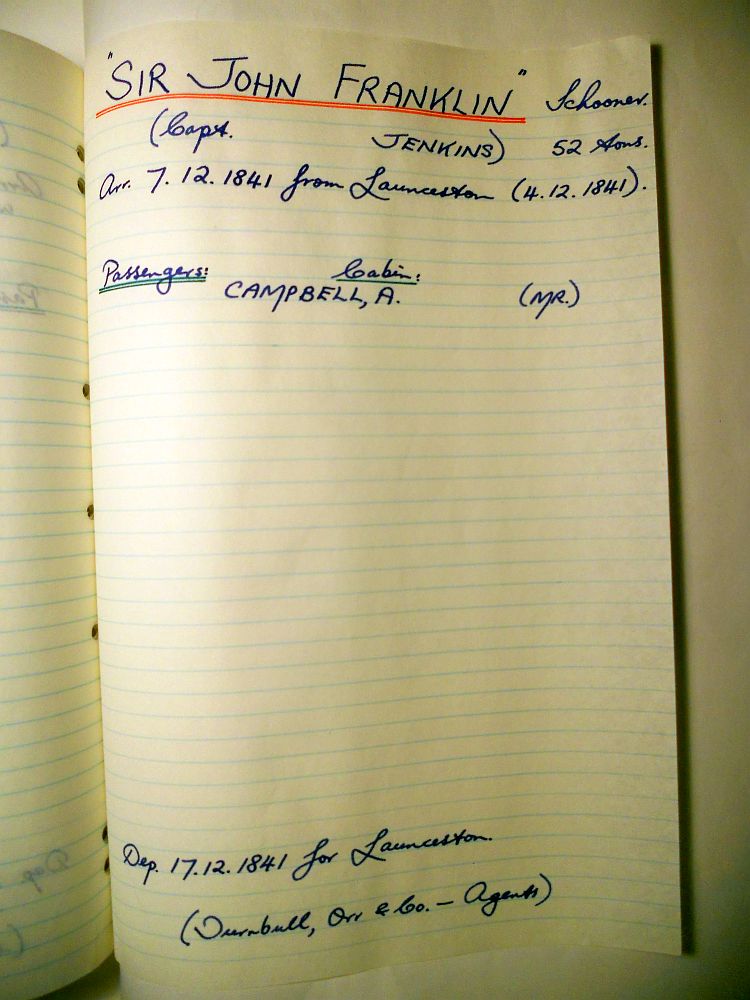 "SIR JOHN FRANKLIN" Schooner.
(Capt. JENKINS) 52 tons.
Arr. 7.12.1841 from Launceston (4.12.1841).
Passengers: Cabin:
CAMPBELL, A. (MR.)
Dep. 17.12.1841 for Launceston.
(Turnbull, Orr & Co. — Agents)